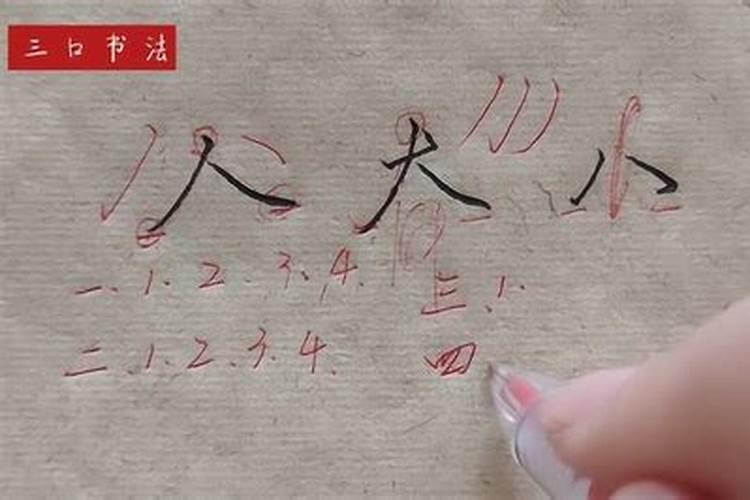 三口书法
人 大
一、1、2、3、4、 三、1、
二、1、2、3、4、 四